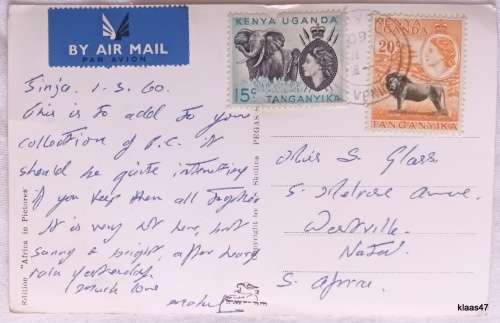 BY AIR MAIL
PAR AVION
KENYA UGANDA
15c
TANGANYIKA
KENYA
UGANDA
20c
TANGANYIKA
Jinja. 1-3.60.
This is to add to your
collection of P.C. it
should be quite interesting
if you keep them all together
It is very hot here, but
sunny & bright, after heavy
rain yesterday.
Much love
Miss S. Glass
5. Melrose Avenue.
Westville.
Natal
S. Africa.
Edition "Africa in Pictures"
Copyright by Skolina PEGAS
klaas47